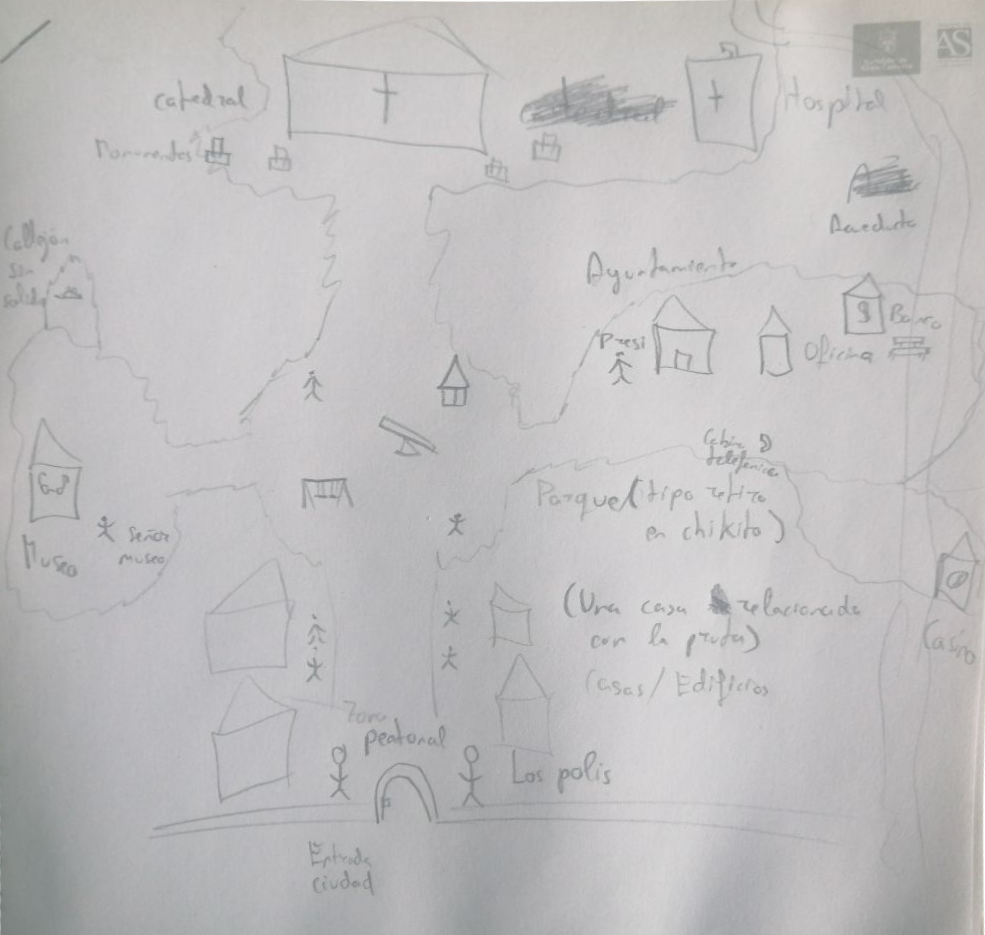 AS
Catedral
Hospital
Monumentos
Acueducto
Callejón
sin
salida
Ayuntamiento
Presi
Oficina
Banco
Cabina
telefonica
Parque (tipo retiro
en chikito)
Museo
Señor
museo
(Una casa relacionada
con la pruta)
Casas / Edificios
Casino
Zona
peatonal
Los polis
Entrada
ciudad